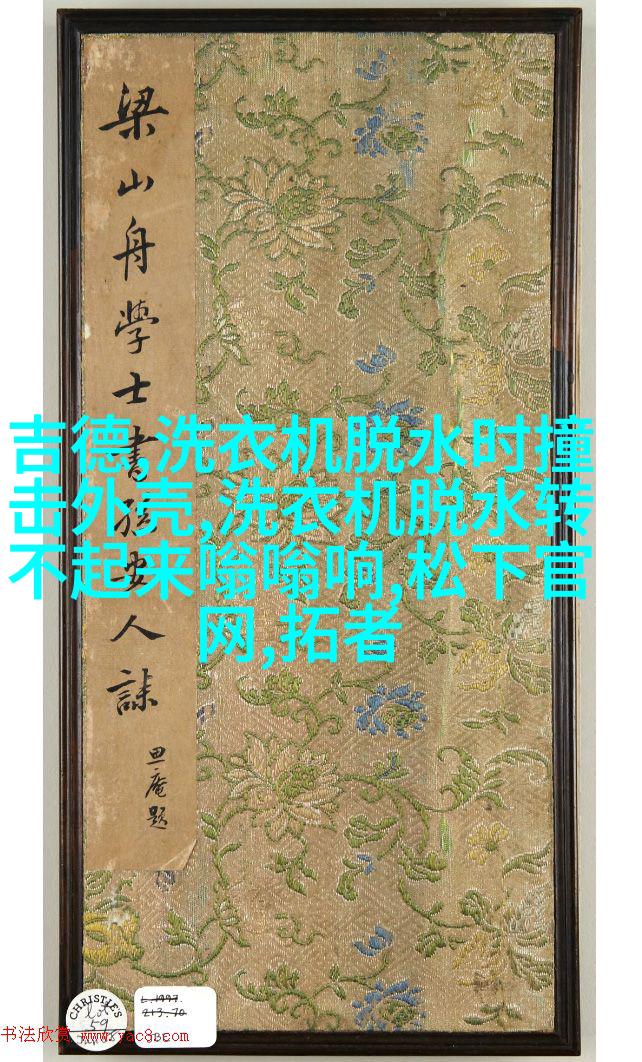 梁山舟學士書孫安人誄
思庵題
吉德,洗衣机脱水时撞
击外壳,洗衣机脱水转
不起来嗡嗡响,松下官
网,拓者
CHRISTIE'S
Lot
59
L.1997.
213.70
书法欣赏 www.yac8.com